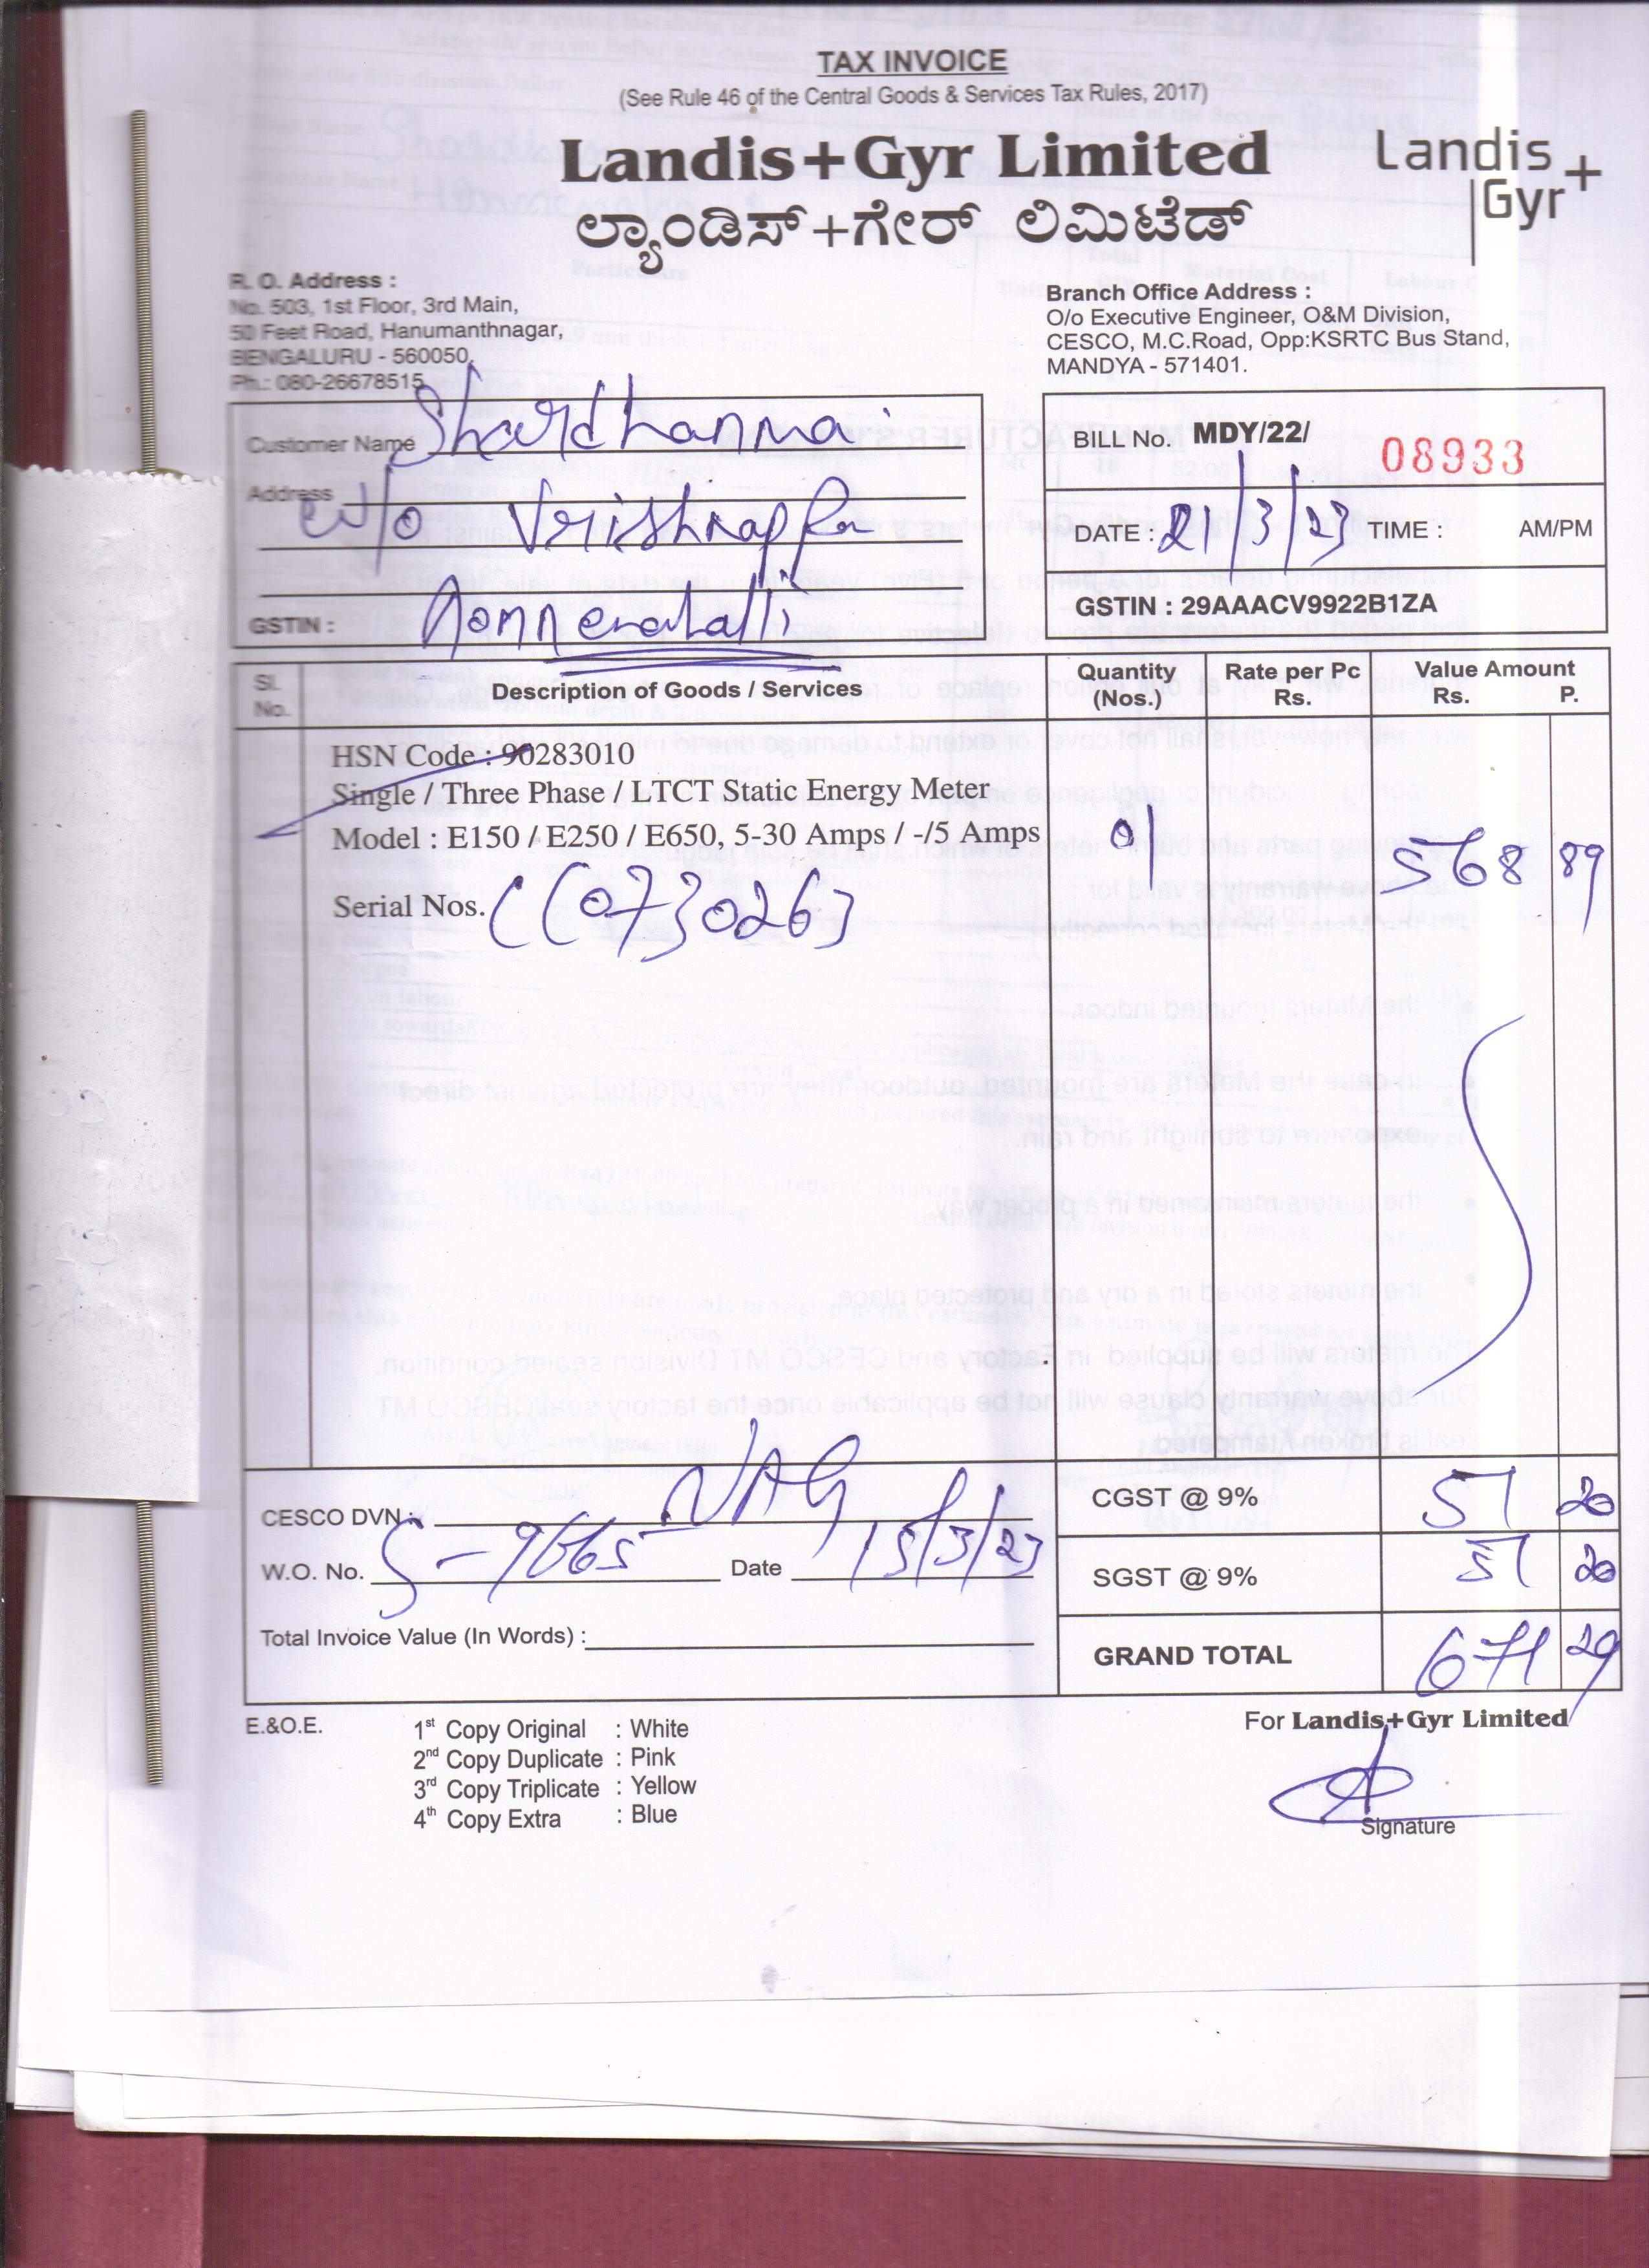 TAX INVOICE
(See Rule 46 of the Central Goods & Services Tax Rules, 2017)
Landis+Gyr Limited
ಲ್ಯಾಂಡಿಸ್+ಗೇರ್ ಲಿಮಿಟೆಡ್
Landis+
Gyr
R. O. Address :
No. 503, 1st Floor, 3rd Main,
50 Feet Road, Hanumanthnagar,
BENGALURU - 560050,
Ph.: 080-26678515
Branch Office Address :
O/o Executive Engineer, O&M Division,
CESCO, M.C.Road, Opp:KSRTC Bus Stand,
MANDYA - 571401.
Customer Name Shardhamma
Address
W/o
GSTIN :
BILL No. MDY/22/ 08933
DATE : 21/3/23 TIME : AM/PM
GSTIN : 29AAACV9922B1ZA
Sl. No. Description of Goods / Services Quantity (Nos.) Rate per Pc Rs. Value Amount Rs. P.
HSN Code : 90283010
Single / Three Phase / LTCT Static Energy Meter
Model : E150 / E250 / E650, 5-30 Amps / -/5 Amps 01 568 89
Serial Nos. CC0730263
CESCO DVN : NAG
W.O. No. S-9665 Date 15/3/23
Total Invoice Value (In Words) :
CGST @ 9% 51 20
SGST @ 9% 51 20
GRAND TOTAL 671 29
E.&O.E.
1st Copy Original : White
2nd Copy Duplicate : Pink
3rd Copy Triplicate : Yellow
4th Copy Extra : Blue
For Landis+Gyr Limited
Signature